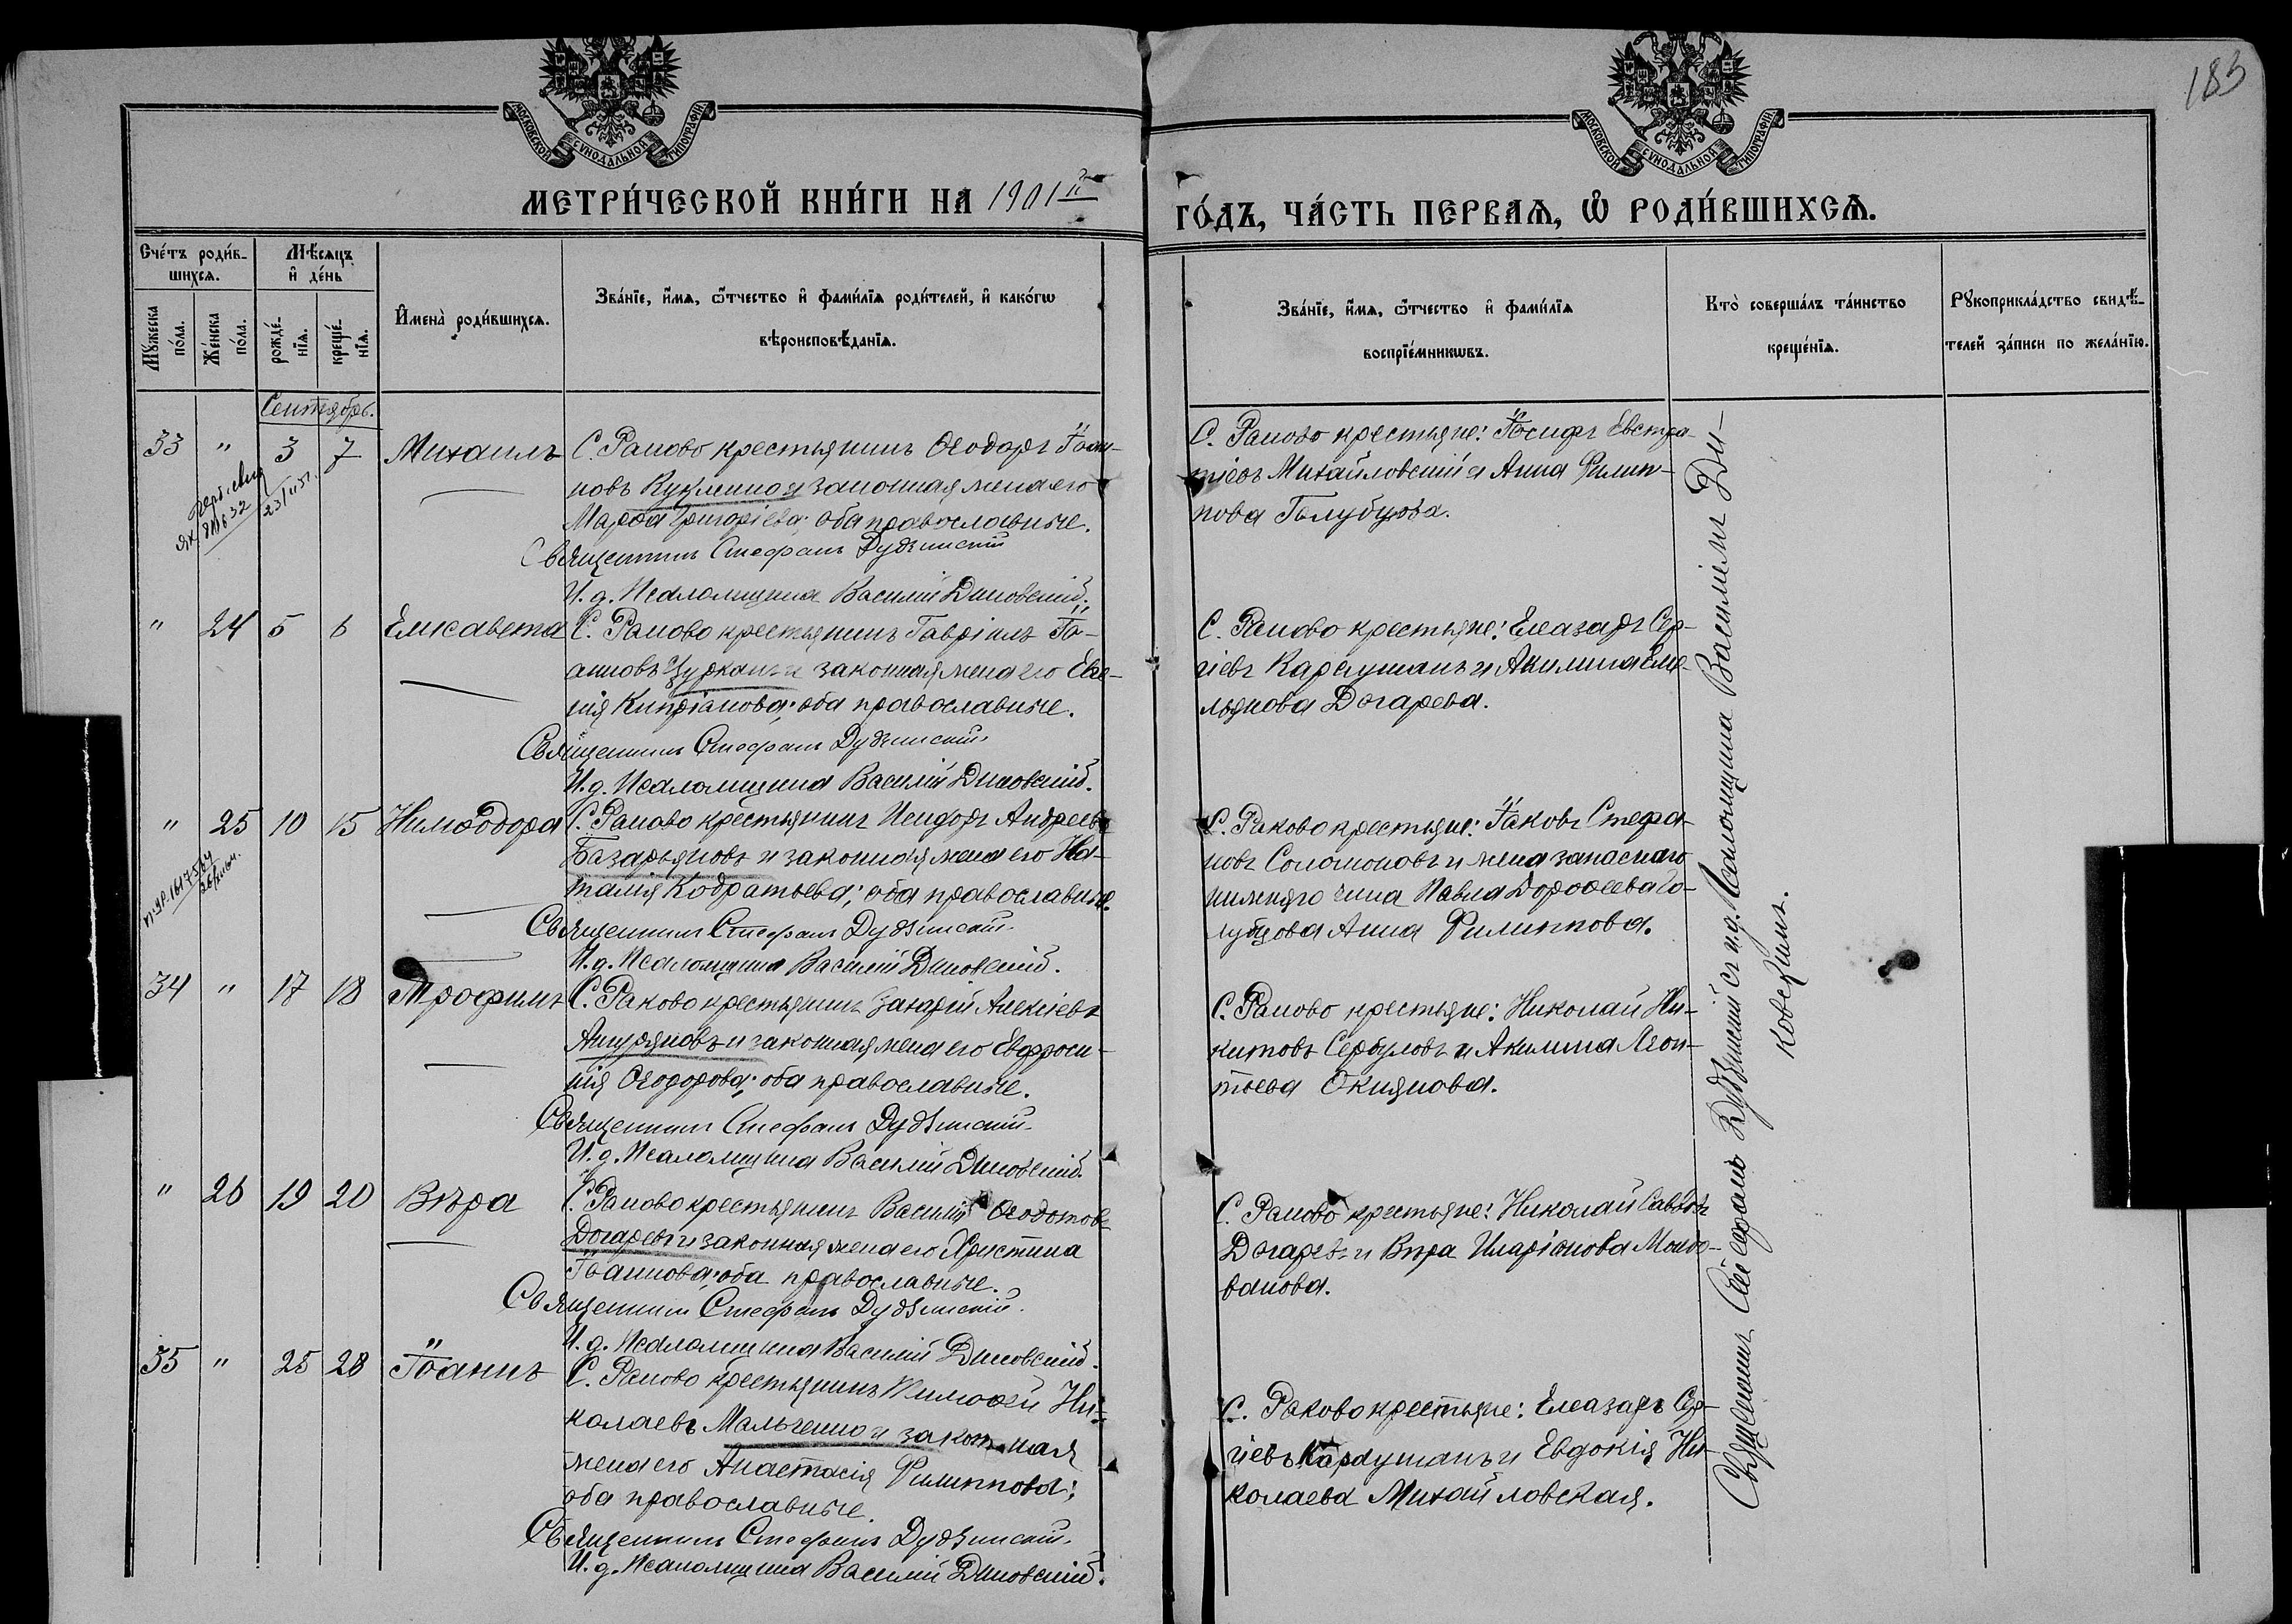 183
МОСКОВСКОЙ СѴНОДАЛЬНОЙ ТИПОГРАФІИ
МОСКОВСКОЙ СѴНОДАЛЬНОЙ ТИПОГРАФІИ
МЕТРИ́ЧЕСКОЙ КНИ́ГИ НА 1901й
ГО́ДЪ, ЧА́СТЬ ПЕРВАѦ, Ѡ҆ РОДИ́ВШИХСѦ.
Сче́тъ роди́в-
шихсѧ.
Мꙋ́жеска
по́ла.
Же́нска
по́ла.
Мѣ́сѧцъ
и҆ де́нь
рожде́-
нїѧ.
креще́-
нїѧ.
И҆мена̀ роди́вшихсѧ.
Зва́нїе, и҆́мѧ, ѻ҆́тчество и҆ фами́лїѧ роди́телей, и҆ како́гѡ
вѣроисповѣ́данїѧ.
Зва́нїе, и҆́мѧ, ѻ҆́тчество и҆ фами́лїѧ
воспрїе́мникѡвъ.
Кто̀ соверша́лъ та́инство
креще́нїѧ.
Рꙋкоприкла́дство свидѣ́-
телей за́писи по жела́нїю.
Сентябрь.
33 " 3 7 Михаилъ
С. Раково крестьянинъ Ѳеодоръ Іоан-
новъ и законная жена его
Марѳа Григоріева; оба православные.
Священникъ Стефанъ Дудзинскій
И. д. Псаломщика Василій Диковскій.
С. Раково крестьяне: Іосифъ Евстра-
тіевъ Михайловскій и Анна Филип-
пова Голубцова.
" 24 5 6 Елисавета
С. Раково крестьянинъ Гавріилъ Іо-
анновъ Цурканъ и законная жена его Евге-
нія Кипріанова; оба православные.
Священникъ Стефанъ Дудзинскій
И. д. Псаломщика Василій Диковскій.
С. Раково крестьяне: Елеазаръ Сер-
гіевъ Караушанъ и Акилина Еме-
льянова Догарева.
" 25 10 15 Нимѳодора
С. Раково крестьянинъ Исидоръ Андреевъ
Базарьяновъ и законная жена его На-
талія Кодратьева; оба православные.
Священникъ Стефанъ Дудзинскій
И. д. Псаломщика Василій Диковскій.
С. Раково крестьяне: Іаковъ Стефа-
новъ Соломоновъ и жена запаснаго
нижняго чина Павла Дороѳеева Го-
лубцова Анна Филиппова.
34 " 17 18 Трофимъ
С. Раково крестьянинъ Захарій Алексіевъ
и законная жена его Евфроси-
нія Ѳеодорова; оба православные.
Священникъ Стефанъ Дудзинскій
И. д. Псаломщика Василій Диковскій.
С. Раково крестьяне: Николай Ни-
китовъ Сербуловъ и Акилина Леон-
тьева Окиянова.
" 26 19 20 Вѣра
С. Раково крестьянинъ Василій Ѳеодотовъ
Догаревъ и законная жена его Христина
Іоаннова; оба православные.
Священникъ Стефанъ Дудзинскій
И. д. Псаломщика Василій Диковскій.
С. Раково крестьяне: Николай Саввовъ
Догаревъ и Вѣра Иларіонова Молдо-
ванова.
35 " 25 28 Іоаннъ
С. Раково крестьянинъ Тимоѳей Ни-
колаевъ Мальченко и законная
жена его Анастасія Филиппова;
оба православные.
Священникъ Стефанъ Дудзинскій
И. д. Псаломщика Василій Диковскій.
С. Раково крестьяне: Елеазаръ Сер-
гіевъ Караушанъ и Евдокія Ни-
колаева Михайловская.
Священникъ Стефанъ Дудзинскій съ и.д. Псаломщика Василіемъ Ди-
ковскимъ.